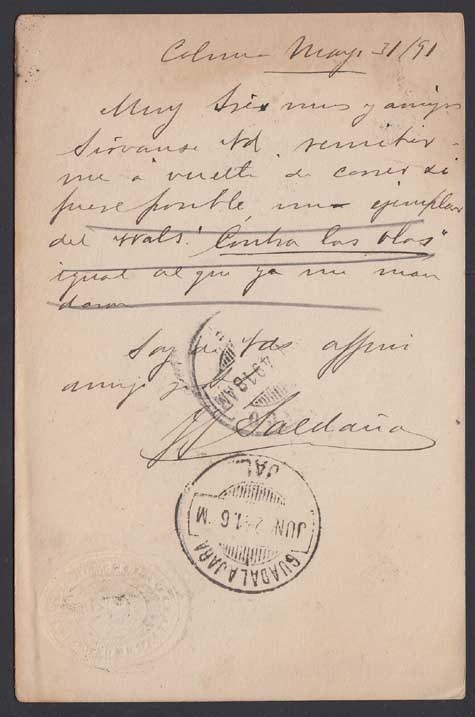 Colima Mayo 31/91
Muy Sres mios y amigos
Sirvanse Vd. remitir-
me á vuelta de correo si
fuere posible un ejemplar
del Wals "Contra las olas"
igual al que ya me man
daron
Soy de Vds affmo
amigo
Saldaña
JAL.
JUN 2 91. 6 M
GUADALAJARA